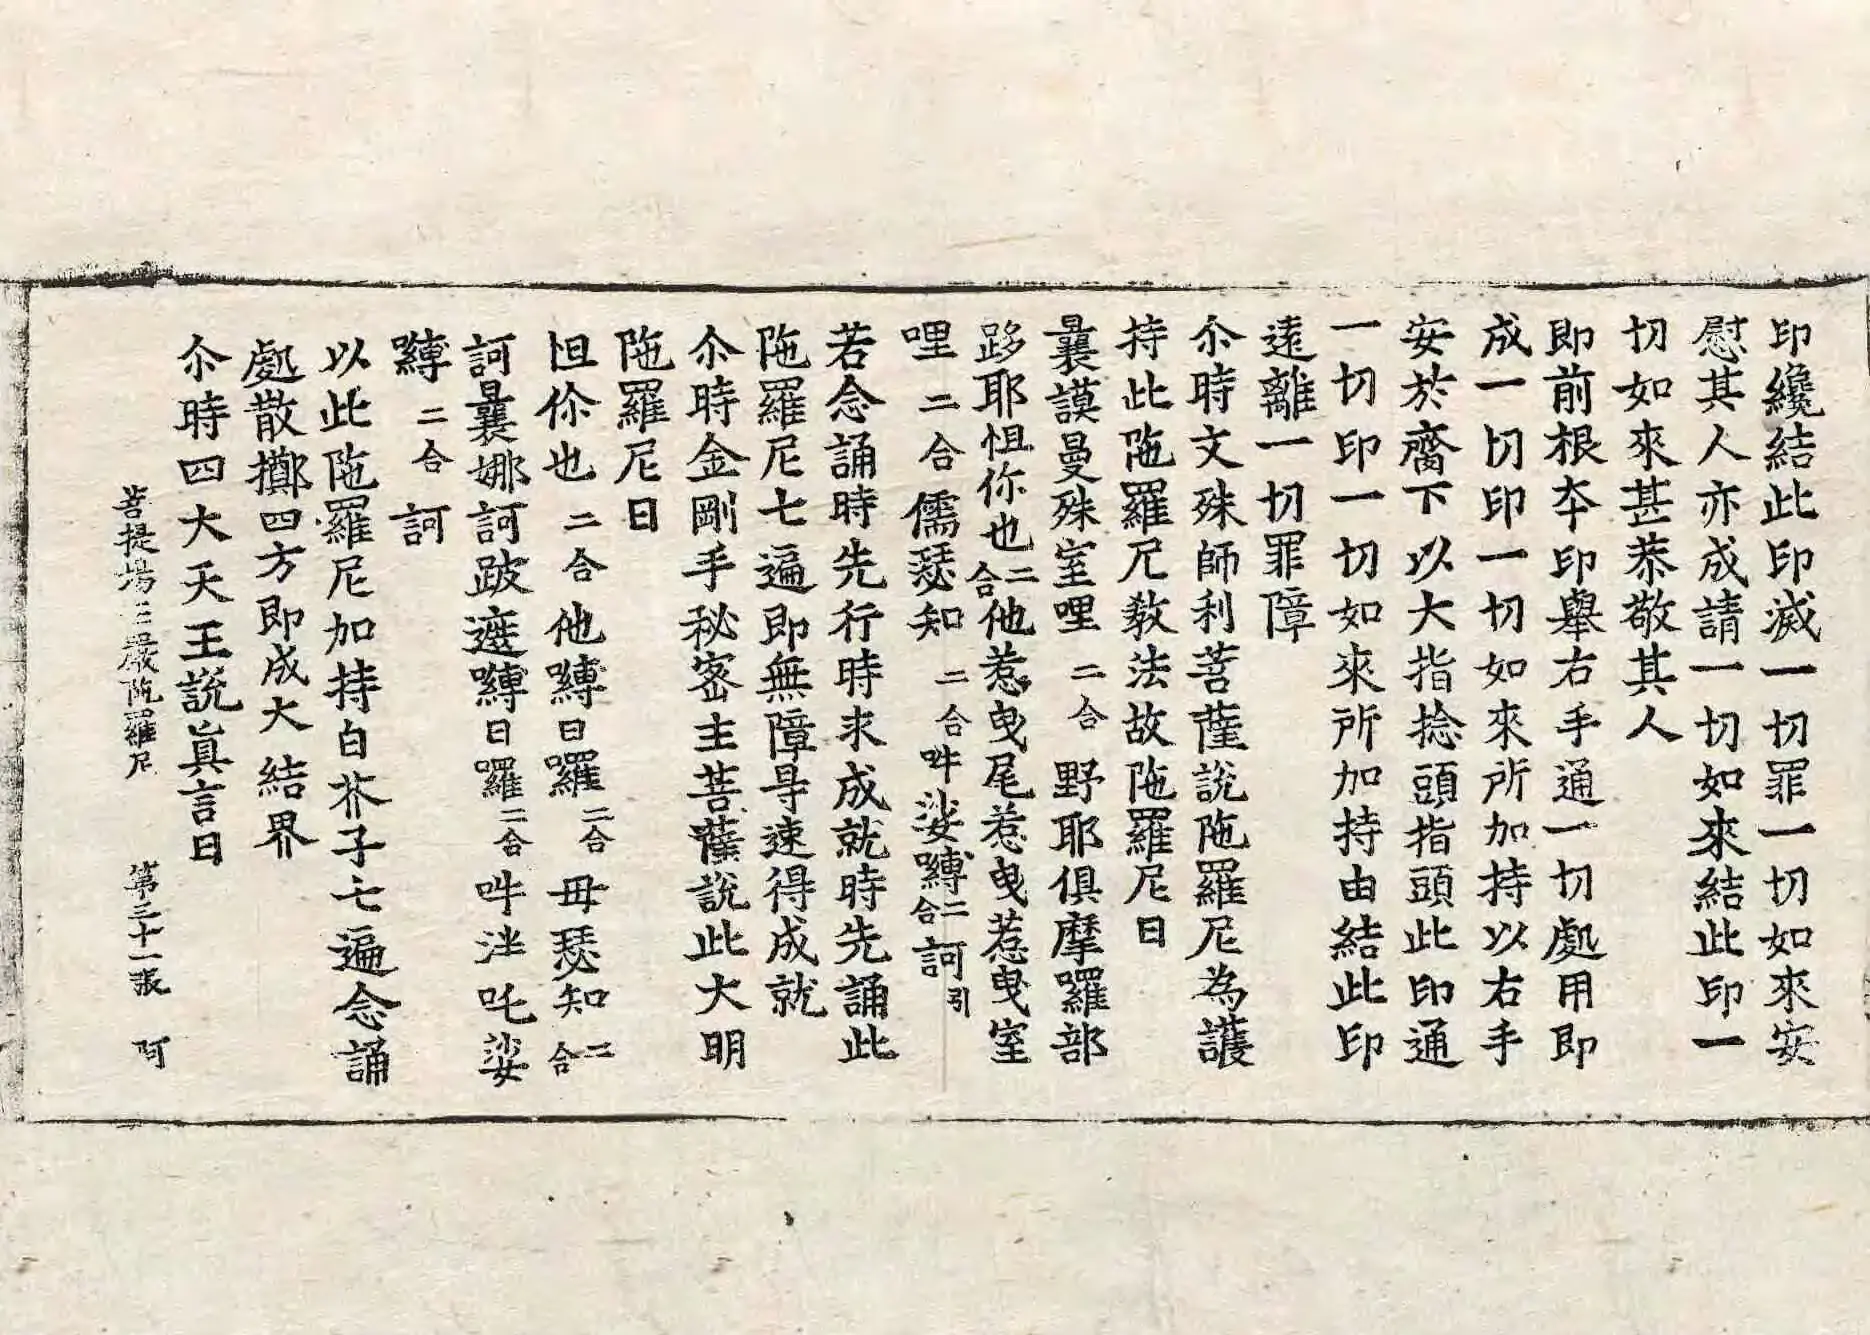 印纔結此印滅一切罪一切如來安
慰其人亦成請一切如來結此印一
切如來甚恭敬其人
即前根夲印舉右手通一切處用即
成一切印一切如來所加持以右手
安於齎下以大指捻頭指頭此印通
一切印一切如來所加持由結此印
遠離一切罪障
尒時文殊師利菩薩說陁羅尼為護
持此陁羅尼教法故陁羅尼曰
曩謨曼殊室哩二合野耶俱摩囉部
跢耶怛你也二合他惹曳尾惹曳惹曳室
哩二合儒瑟知二合吽娑嚩二合訶引
若念誦時先行時求成就時先誦此
陁羅尼七遍即無障㝵速得成就
尒時金剛手秘密主菩薩說此大明
陁羅尼曰
怛你也二合他嚩日囉二合毋瑟知二合
訶曩娜訶跛遮嚩日囉二合吽泮吒娑
嚩二合訶
以此陁羅尼加持白芥子七遍念誦
處散擲四方即成大結界
尒時四大天王說眞言曰
菩提場荘嚴陁羅尼 第三十一張 阿